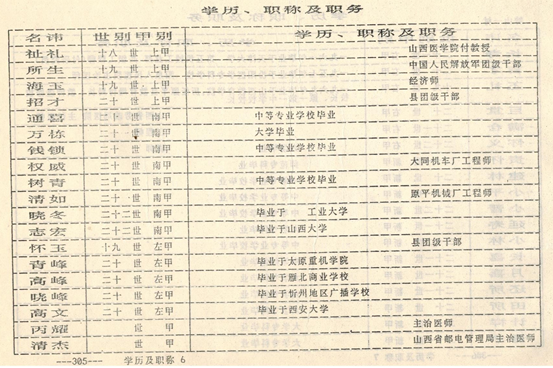 学历、职称及职务
名讳 世别甲别 学历、职称及职务
祉礼 十八 世 上甲 山西医学院付教授
所生 十九 世 上甲 中国人民解放军团级干部
海玉 十九 世 上甲 经济师
招才 二十 世 上甲 县团级干部
通喜 二十 世 南甲 中等专业学校毕业
万栋 二十 世 南甲 大学毕业
钱锁 二十 世 南甲 中等专业学校毕业
权威 二十 世 南甲 大同机车厂工程师
树青 二十 世 南甲 中等专业学校毕业
清如 二十二世 南甲 原平机械厂工程师
晓冬 二十二世 南甲 毕业于 工业大学
志宏 二十二世 南甲 毕业于山西大学
怀玉 十九 世 左甲 县团级干部
青峰 二十 世 左甲 毕业于太原重机学院
高峰 二十 世 左甲 毕业于雁北商业学校
晓峰 二十 世 左甲 毕业于忻州地区广播学校
高文 二十 世 左甲 毕业于西安大学
丙耀 世 甲 主治医师
清杰 世 甲 山西省邮电管理局主治医师
---305--- 学历及职称 6